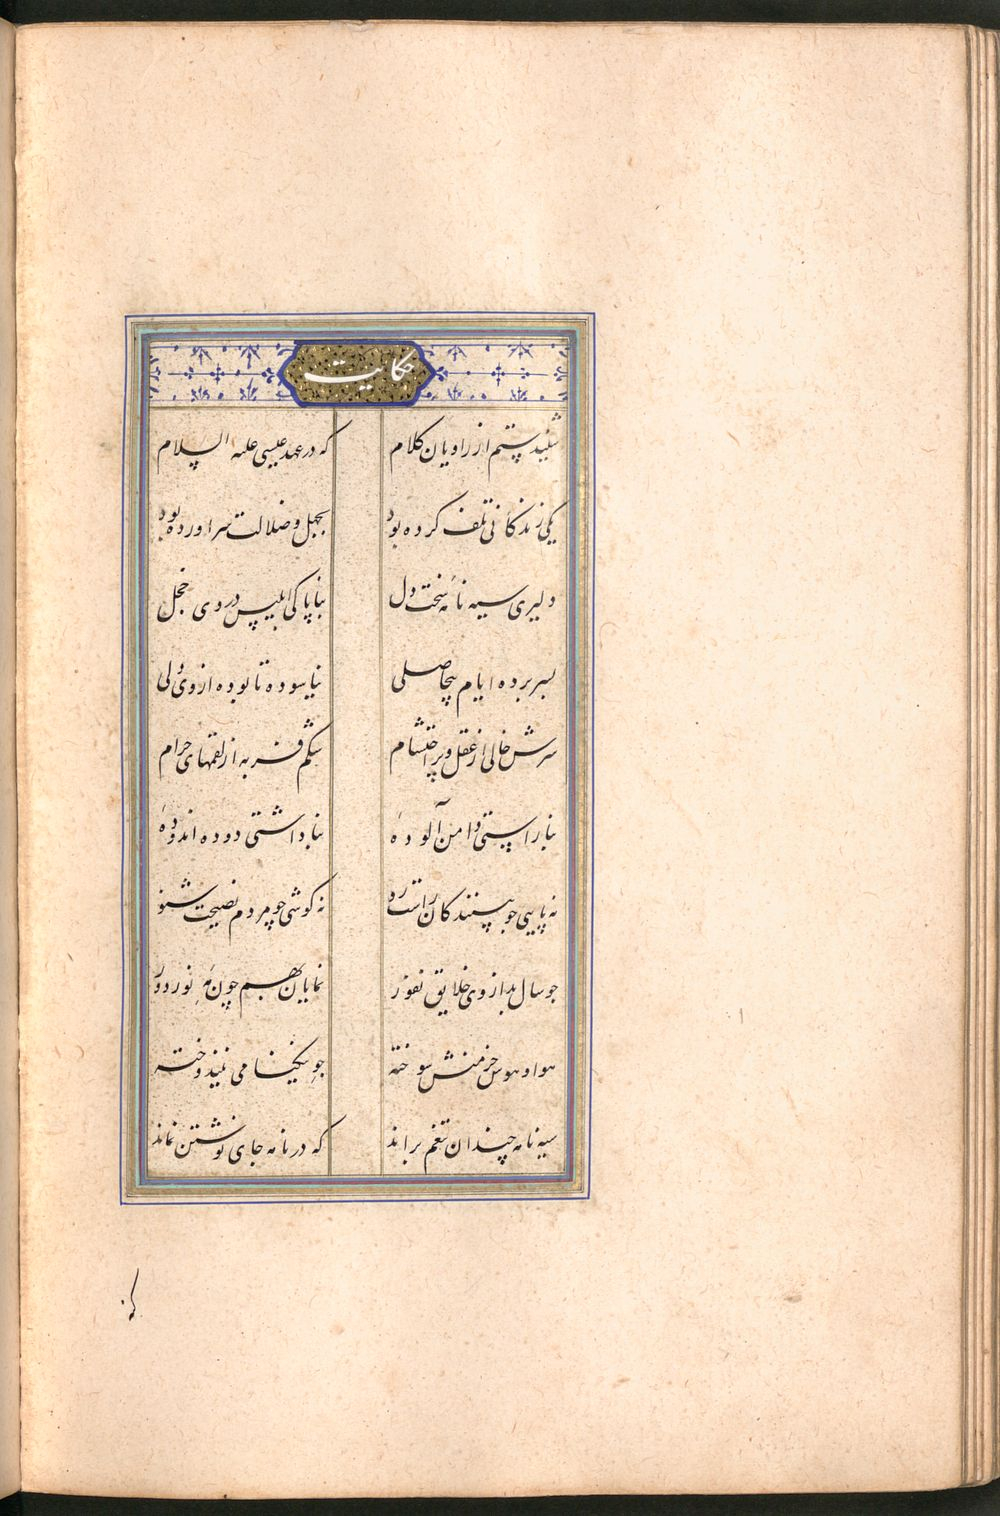 حکایت
شنیدستم از راویان کلام که در عهد عیسی علیه السلام
یکی زندکانی تلف کرده بود بجهل و ضلالت سر اورده بود
دلیری سیه نامهٔ سخت دل بناپاکی ابلیس در وی خجل
بسر برده ایام بیحاصلی نیاسوده تا بوده از وی دلی
سرش خالی از عقل و پر احتشام شکم فربه از لقمهای حرام
بناراستی دامن آلودهٔ بناداشتی دوده اندودهٔ
نه پایی جو بینندکان راست رو نه کوشی جو مردم نصیحت شنو
جو سال بد از وی خلایق نفور نمایان بهم چون مهِ نو ز دور
هوا و هوس خرمنش سوخته جوِ نیکنامی نیندوخته
سیه نامه چندان تنعم براند که در نامه جای نوشتن نماند
کنه